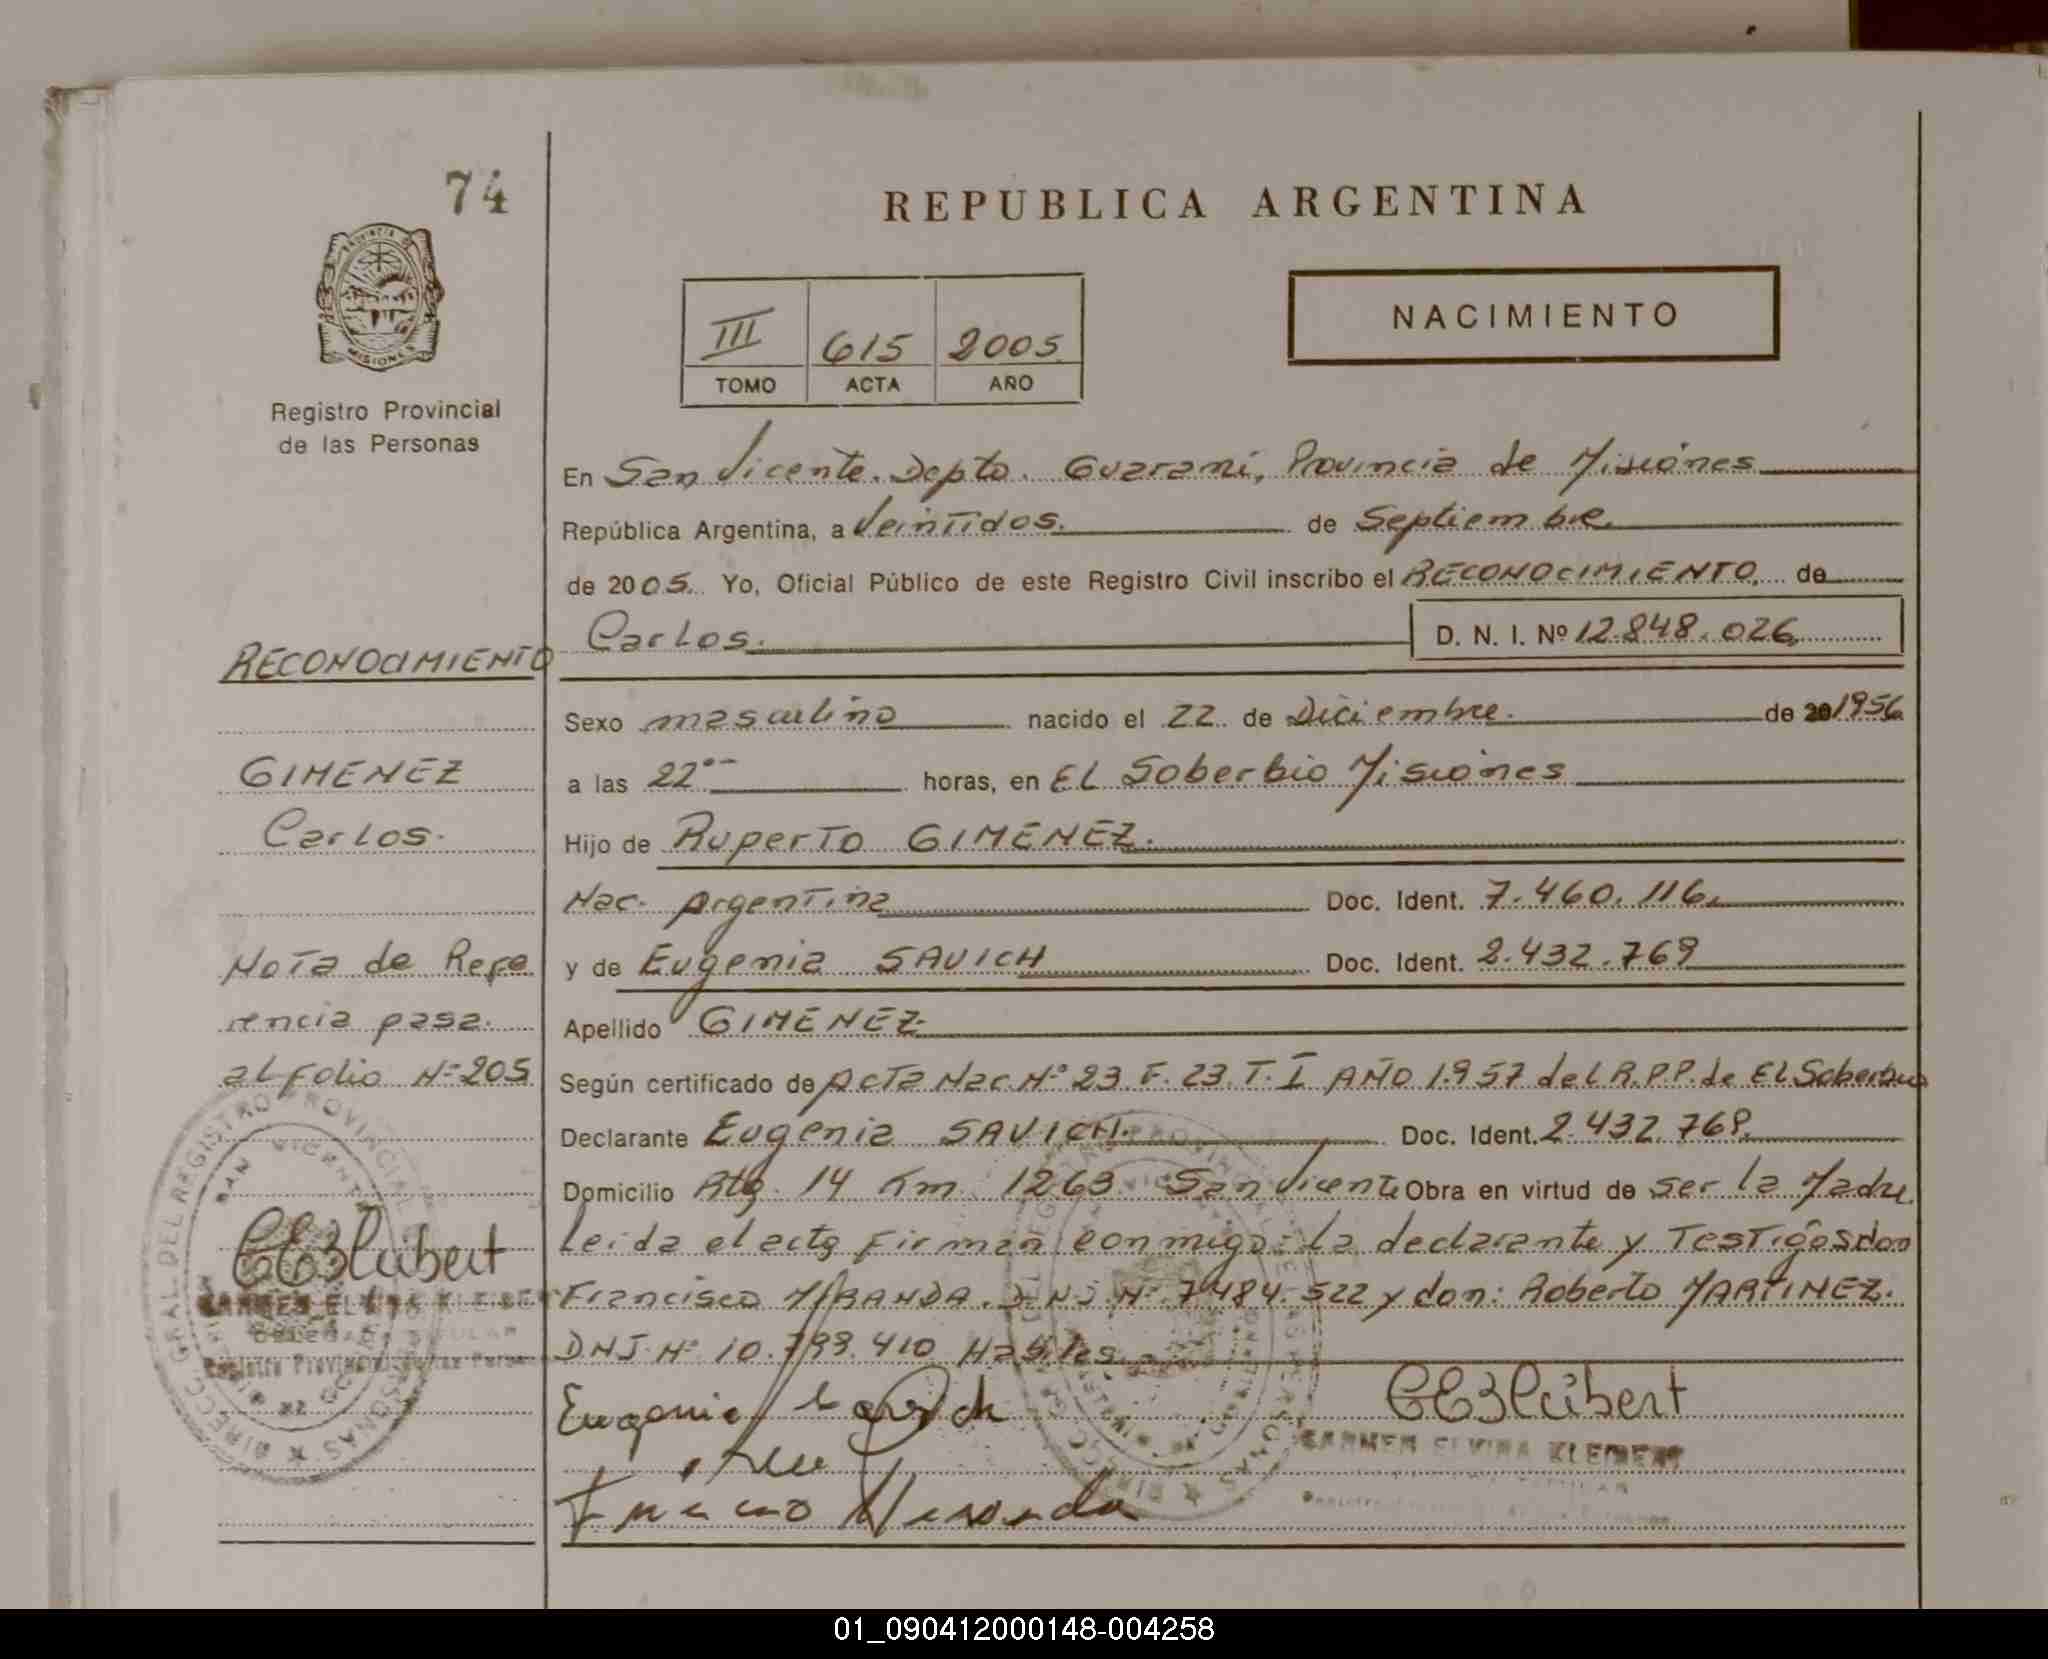 74
REPUBLICA ARGENTINA
PROVINCIA DE
MISIONES
Registro Provincial
de las Personas
III 615 2005
TOMO ACTA AÑO
NACIMIENTO
En San Vicente. Depto. Guarani, Provincia de Misiones
República Argentina, a Veintidos. de Septiembre.
de 2005. Yo, Oficial Público de este Registro Civil inscribo el RECONOCIMIENTO. de
Carlos. D. N. I. Nº 12.848.026
Sexo masculino nacido el 22 de Diciembre. de 20 1956
a las 22°° horas, en EL Soberbio Misiones
Hijo de Ruperto GIMENEZ.
Nac. Argentina Doc. Ident. 7.460.116.
y de Eugenia SAVICH Doc. Ident. 2.432.769
Apellido GIMENEZ
Según certificado de ACTA Nac Nº 23 F. 23. T. I AÑO 1.957 del R.P.P. de El Soberbio
Declarante Eugenia SAVICH. Doc. Ident. 2.432.769.
Domicilio Rta. 14 Km 1263 San Vicente Obra en virtud de ser la Madre.
Leida el acta Firman conmigo: la declarante y Testigos don
Francisco MIRANDA. DNJ Nº 7.484.522 y don: Roberto MARTINEZ.
DNJ. Nº 10.799.410 Habiles.
RECONOCIMIENTO
GIMENEZ
Carlos.
Nota de Refe
rencia pasa.
al Folio Nº 205
DIRECC. GRAL. DEL REGISTRO PROVINCIAL
SAN VICENTE
CARMEN ELVIRA KLEIBERT
DELEGADA TITULAR
Registro Provincial de las Personas
Eugenia Savich
CARMEN ELVIRA KLEIBERT
01_090412000148-004258